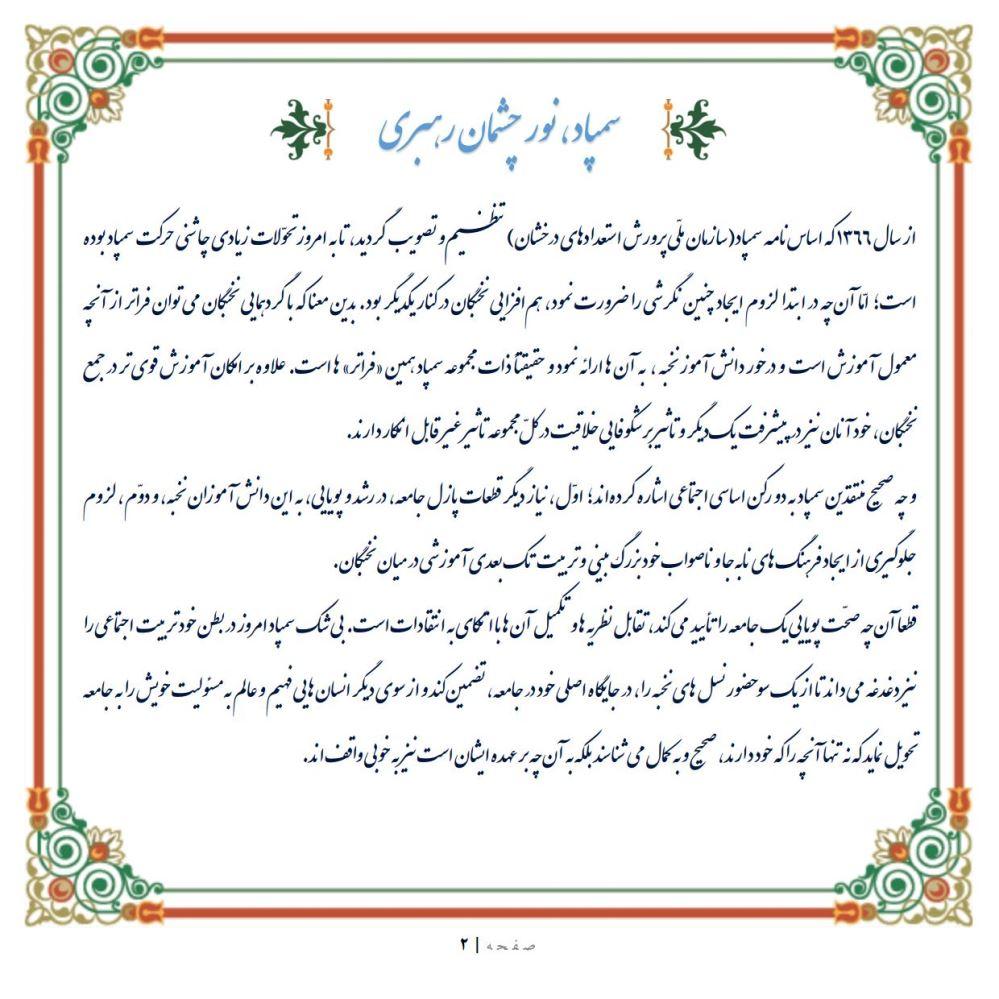 سمپاد، نور چشمان رهبری
از سال ١٣٦٦ که اساس نامه سمپاد (سازمان ملّی پرورش استعدادهای درخشان) تنظیم و تصویب گردید، تا به امروز تحوّلات زیادی چاشنی حرکت سمپاد بوده
است؛ امّا آن چه در ابتدا لزوم ایجاد چنین نگرشی را ضرورت نمود، هم افزایی نخبگان در کنار یکدیگر بود. بدین معنا که با گردهمایی نخبگان می توان فراتر از آنچه
معمول آموزش است و درخور دانش آموز نخبه، به آن ها ارائه نمود و حقیقتاً ذات مجموعه سمپاد همین «فراتر» ها است. علاوه بر امکان آموزش قوی تر در جمع
نخبگان، خود آنان نیز در پیشرفت یک دیگر و تاثیر بر شکوفایی خلاقیت در کلّ مجموعه تاثیر غیر قابل انکار دارند.
و چه صحیح منتقدین سمپاد به دو رکن اساسی اجتماعی اشاره کرده اند؛ اوّل، نیاز دیگر قطعات پازل جامعه، در رشد و پویایی، به این دانش آموزان نخبه، و دوّم، لزوم
جلوگیری از ایجاد فرهنگ های نابه جا و ناصواب خود بزرگ بینی و تربیت تک بعدی آموزشی در میان نخبگان.
قطعا آن چه صحّت پویایی یک جامعه را تأیید می کند، تقابل نظریه ها و تکمیل آن ها با اتکای به انتقادات است. بی شک سمپاد امروز در بطن خود تربیت اجتماعی را
نیز دغدغه می داند تا از یک سو حضور نسل های نخبه را، در جایگاه اصلی خود در جامعه، تضمین کند و از سوی دیگر انسان هایی فهیم و عالم به مسئولیت خویش را به جامعه
تحویل نماید که نه تنها آنچه را که خود دارند، صحیح و به کمال می شناسند بلکه به آن چه بر عهده ایشان است نیز به خوبی واقف اند.
صفحه | ٢